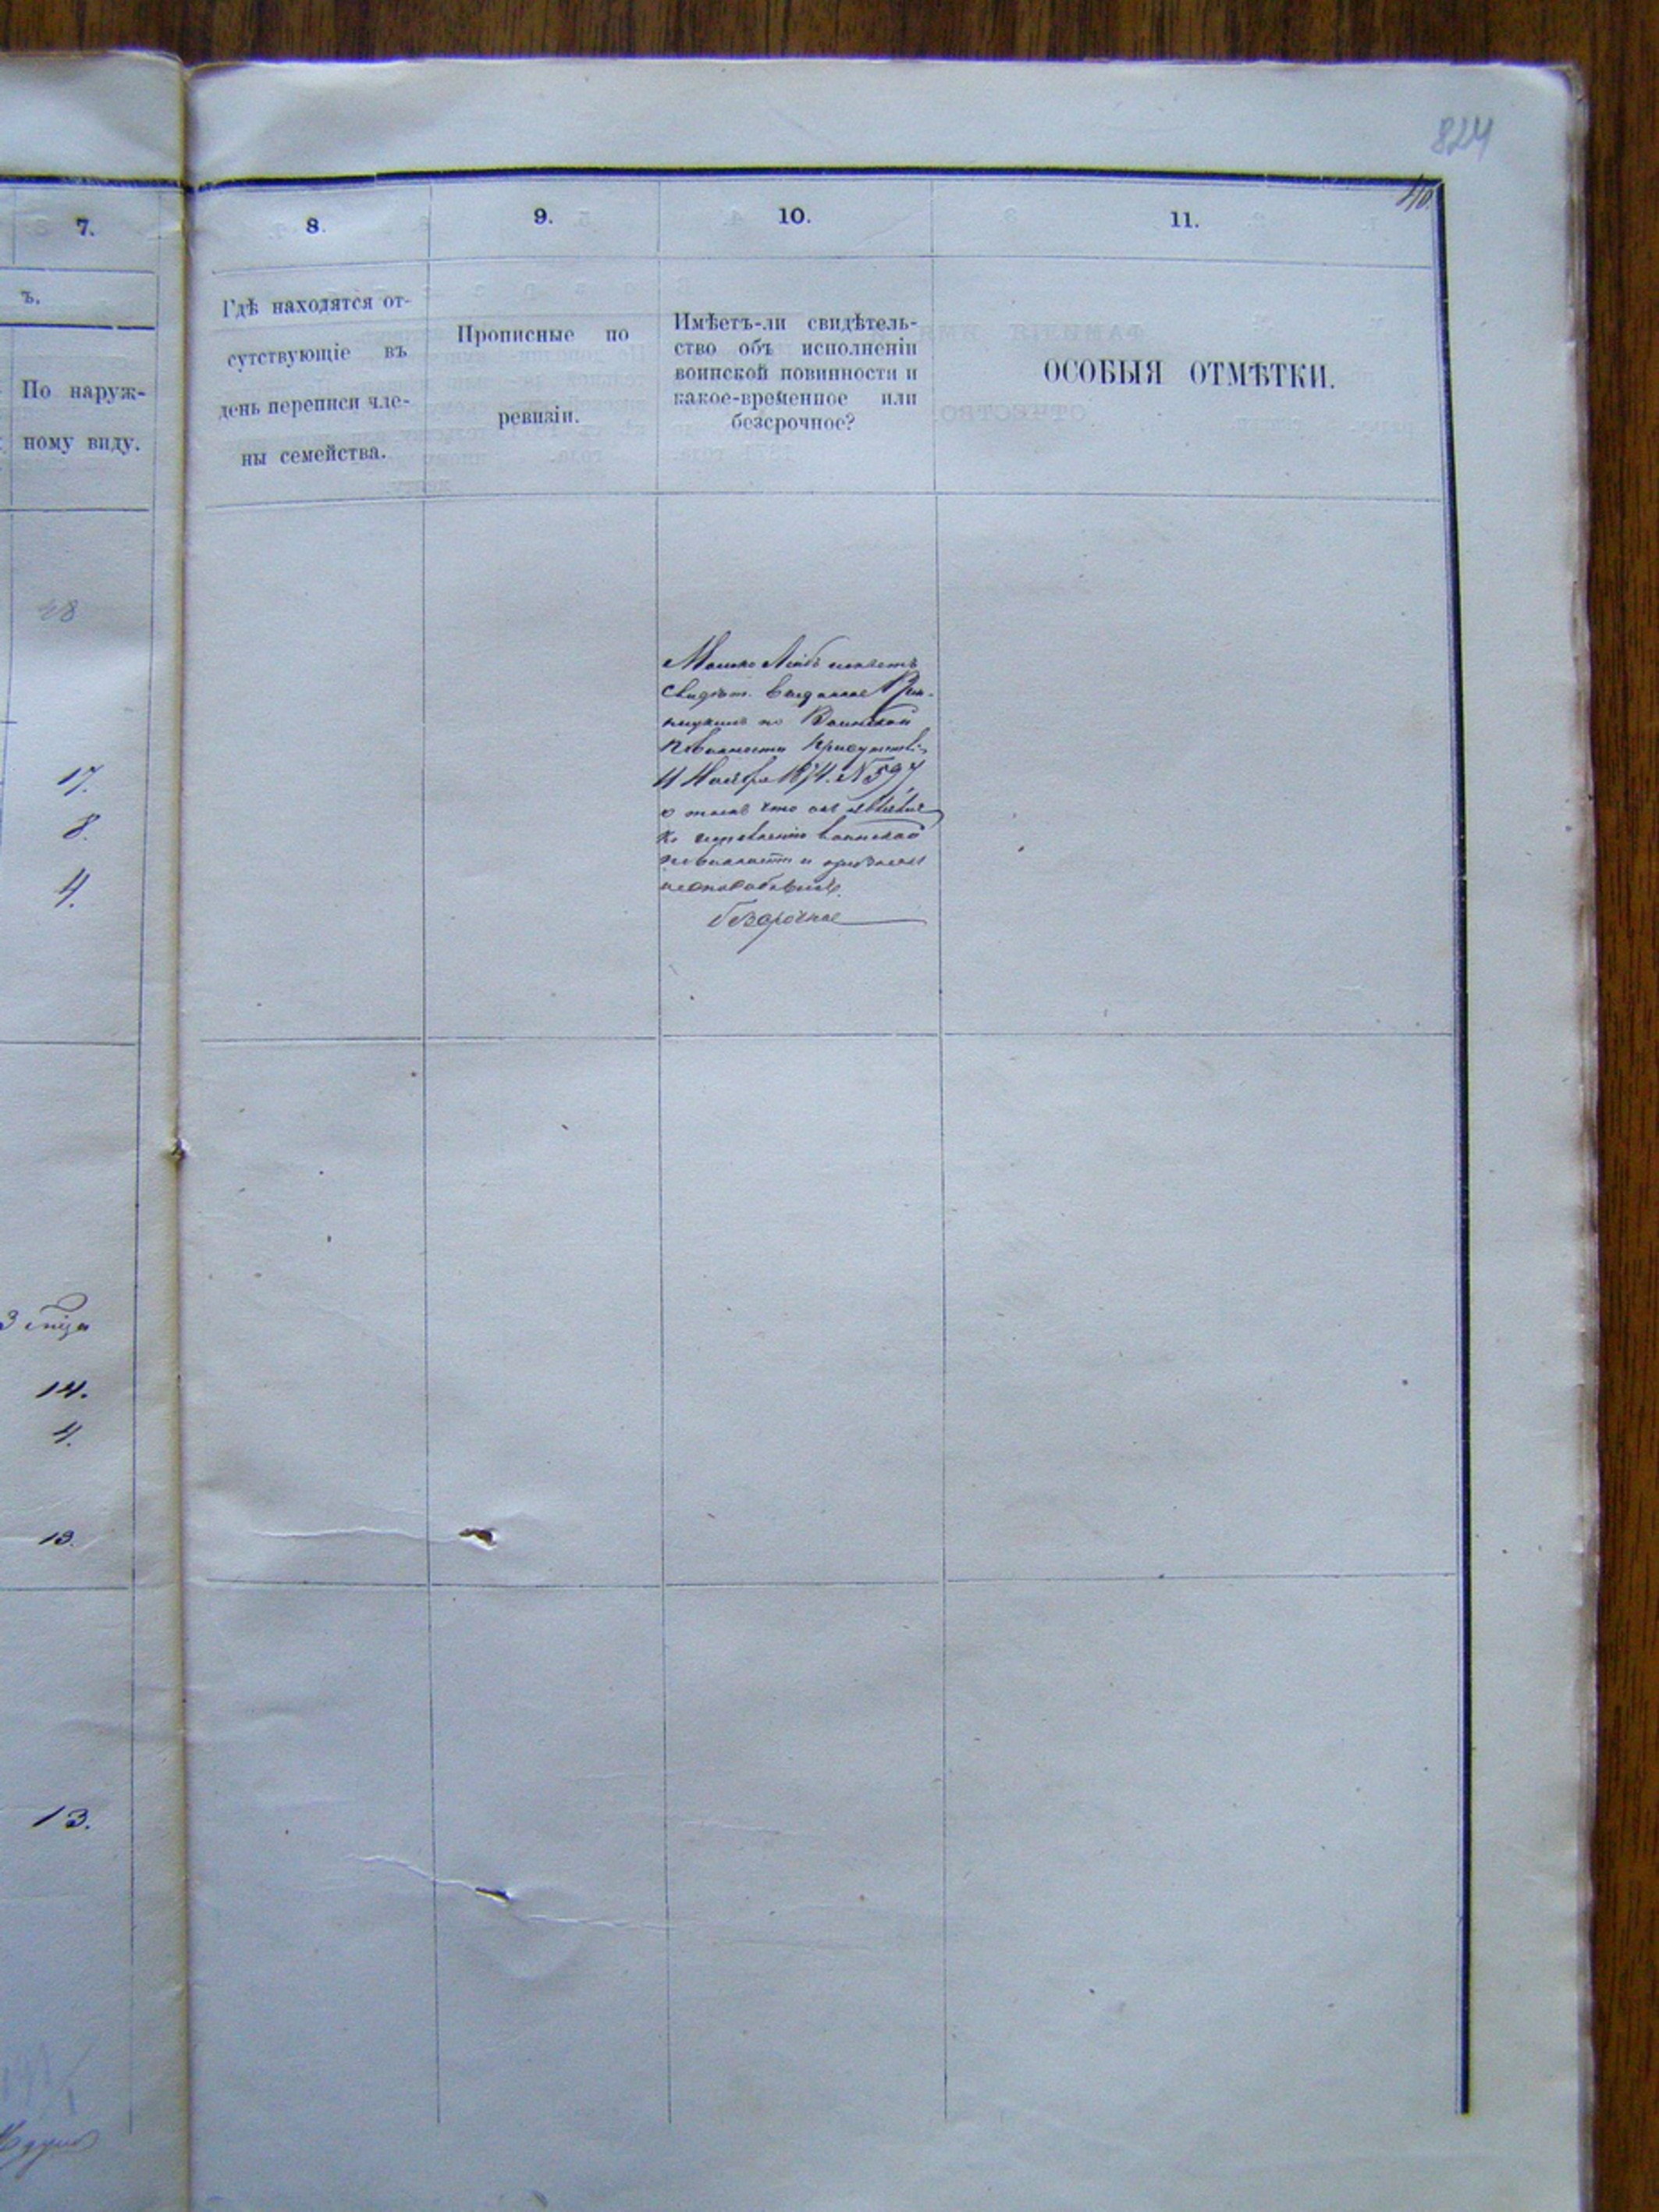 824
40.
7.
8.
9.
10.
11.
ъ.
По наруж-
ному виду.
Гдѣ находятся от-
сутствующіе въ
день переписи чле-
ны семейства.
Прописные по
ревизіи.
Имѣетъ-ли свидѣтель-
ство объ исполненіи
воинской повинности и
какое-временное или
безсрочное?
ОСОБЫЯ ОТМѢТКИ.
48
17.
8.
4.
Лейбъ имѣетъ
свидѣт. выданное
по Воинской
Повинности Присутстві
11 Ноября 1874. N 597,
о томъ что онъ являлся
къ исправленію воинской
повинности и признанъ
неспособнымъ.
безсрочное
3
14.
4.
13.
13.